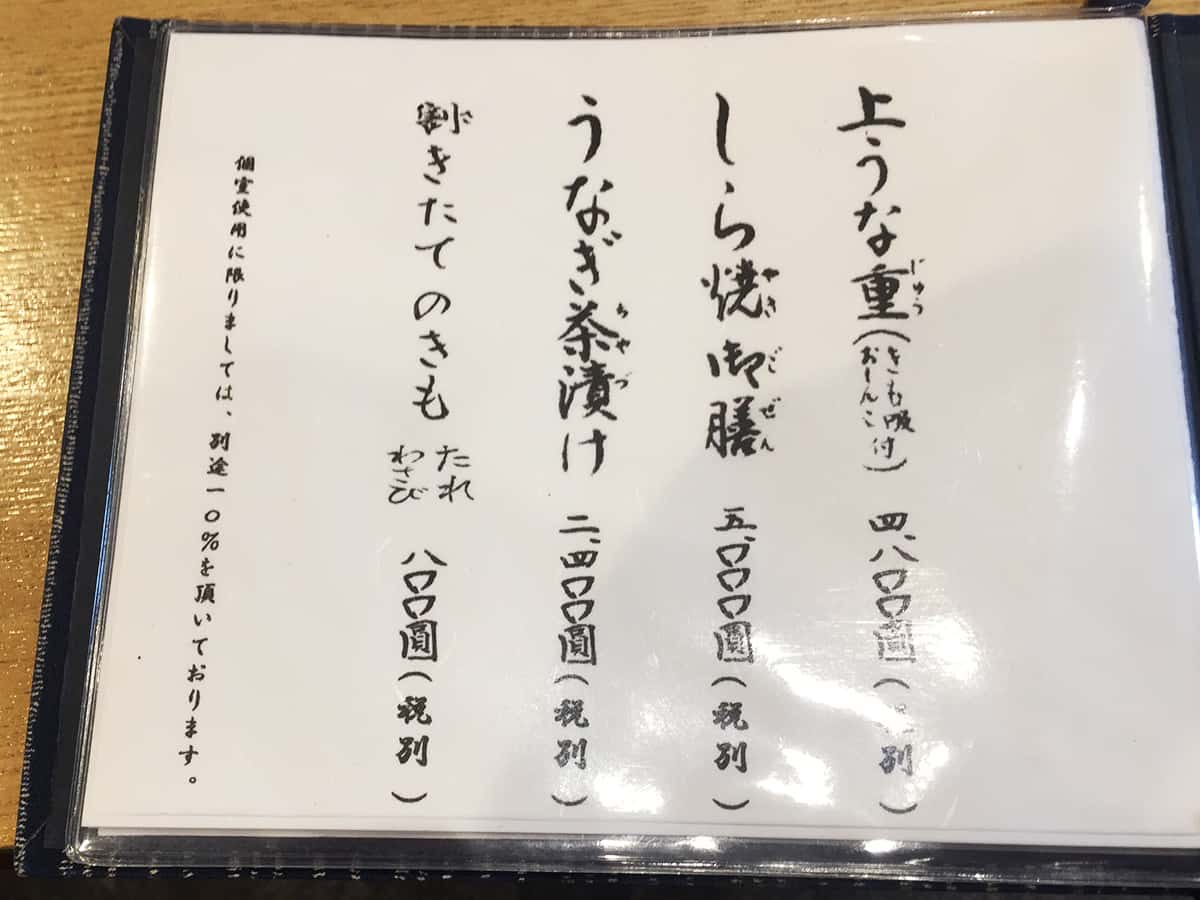 上うな重(きも吸付 おしんこ) 四、八〇〇圓(税別)
じゅう
しら焼御膳 五、〇〇〇圓(税別)
やき ご ぜん
うなぎ茶漬け 二、四〇〇圓(税別)
ちゃ づ
割きたてのきも たれ わさび 八〇〇圓(税別)
さ
個室使用に限りましては、別途一〇%を頂いております。